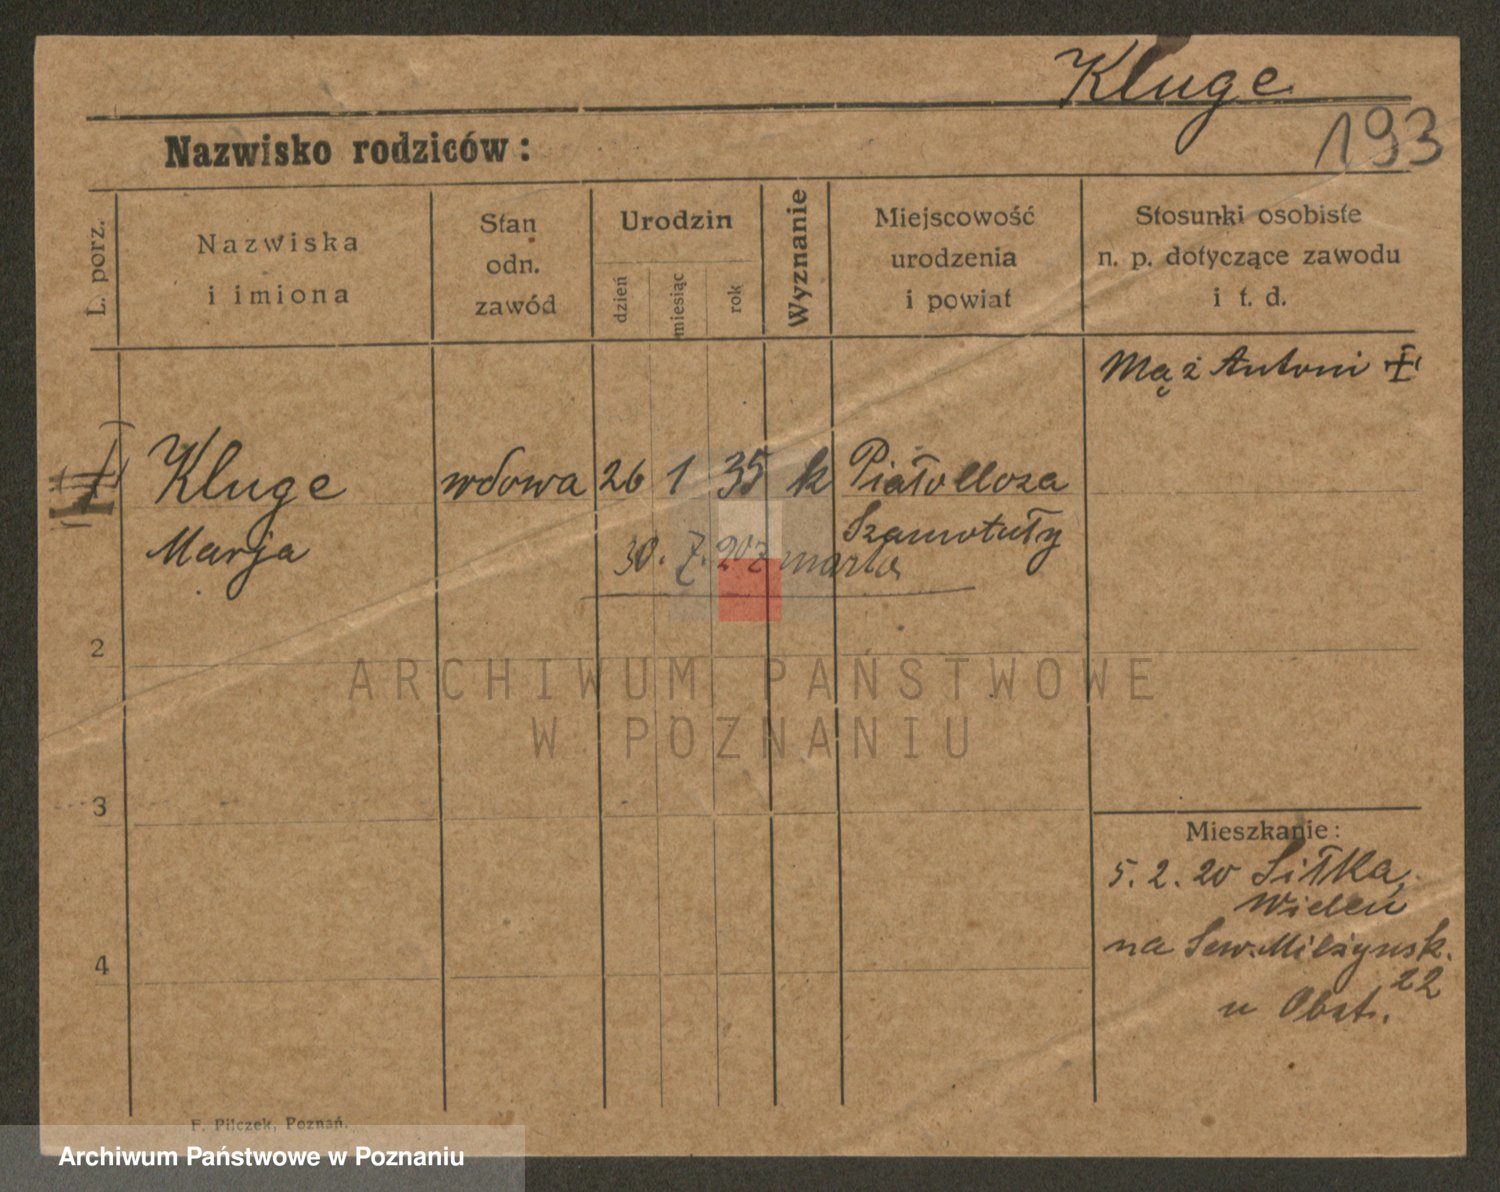 Kluge
193
Nazwisko rodziców :
L. porz.
Nazwiska
i imiona
Stan
odn.
zawód
Urodzin
dzień
miesiąc
rok
Wyznanie
Miejscowość
urodzenia
i powiat
Stosunki osobiste
n. p. dotyczące zawodu
i t. d.
Mąż Antoni
Kluge wdowa 26 1 35 k
Marja Szamotuły
30. 7. 20 zmarła
2
3
4
ARCHIWUM PAŃSTWOWE
W POZNANIU
Mieszkanie:
5. 2. 20
Wieleń
na Sew. Milżynsk.
22
u
F. Pilczek, Poznań.
Archiwum Państwowe w Poznaniu